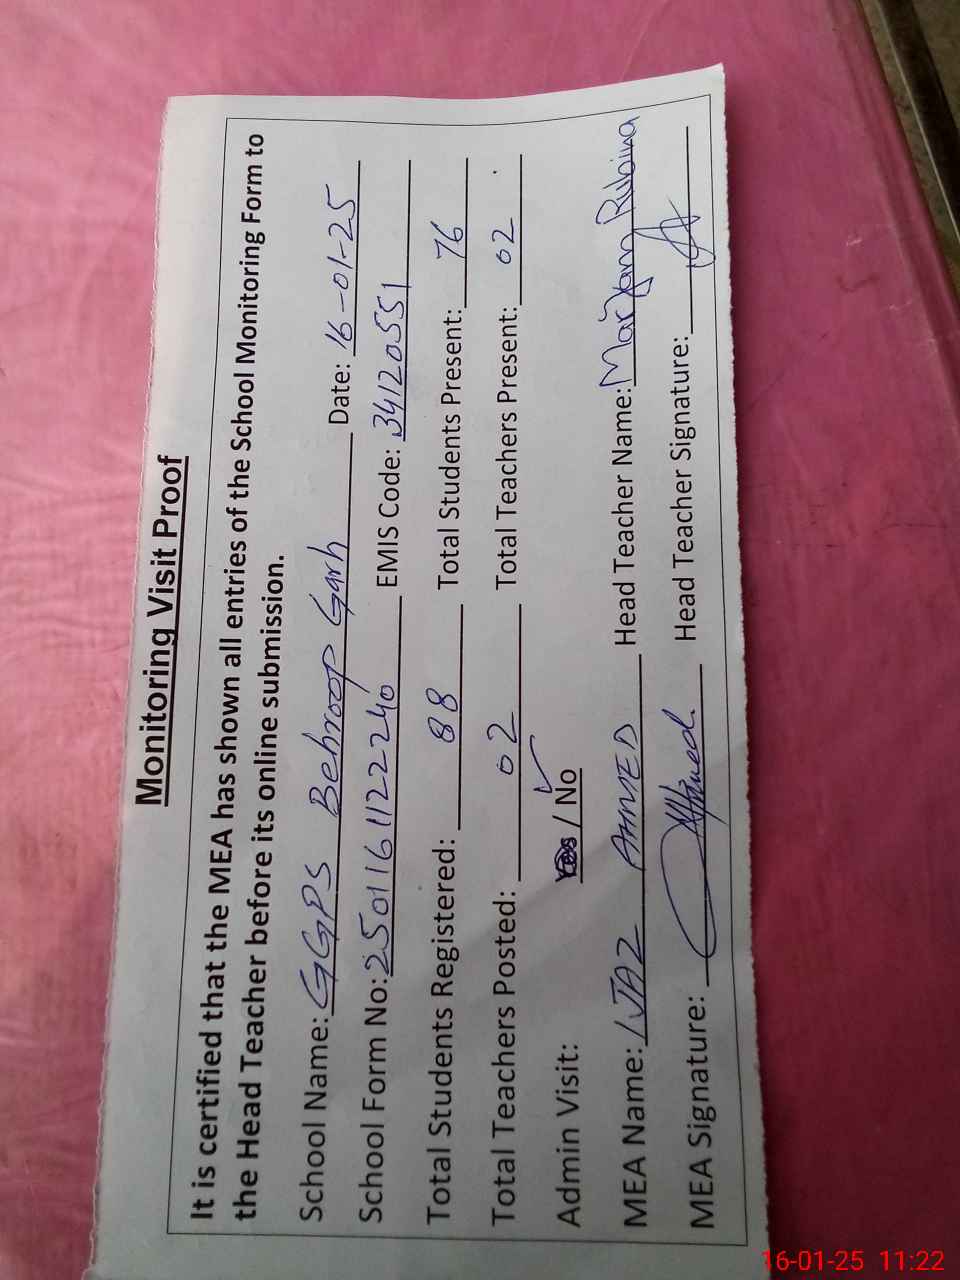 Monitoring Visit Proof
It is certified that the MEA has shown all entries of the School Monitoring Form to
the Head Teacher before its online submission.
School Name: GGPS Behroop Garh Date: 16-01-25
School Form No: 250116112224o EMIS Code: 34120551
Total Students Registered: 88 Total Students Present: 76
Total Teachers Posted: 02 Total Teachers Present: 02
Admin Visit: Yes / No ✓
MEA Name: IJAZ AHMED Head Teacher Name: Maryam Rubina
MEA Signature: Ahmed. Head Teacher Signature:
16-01-25 11:22